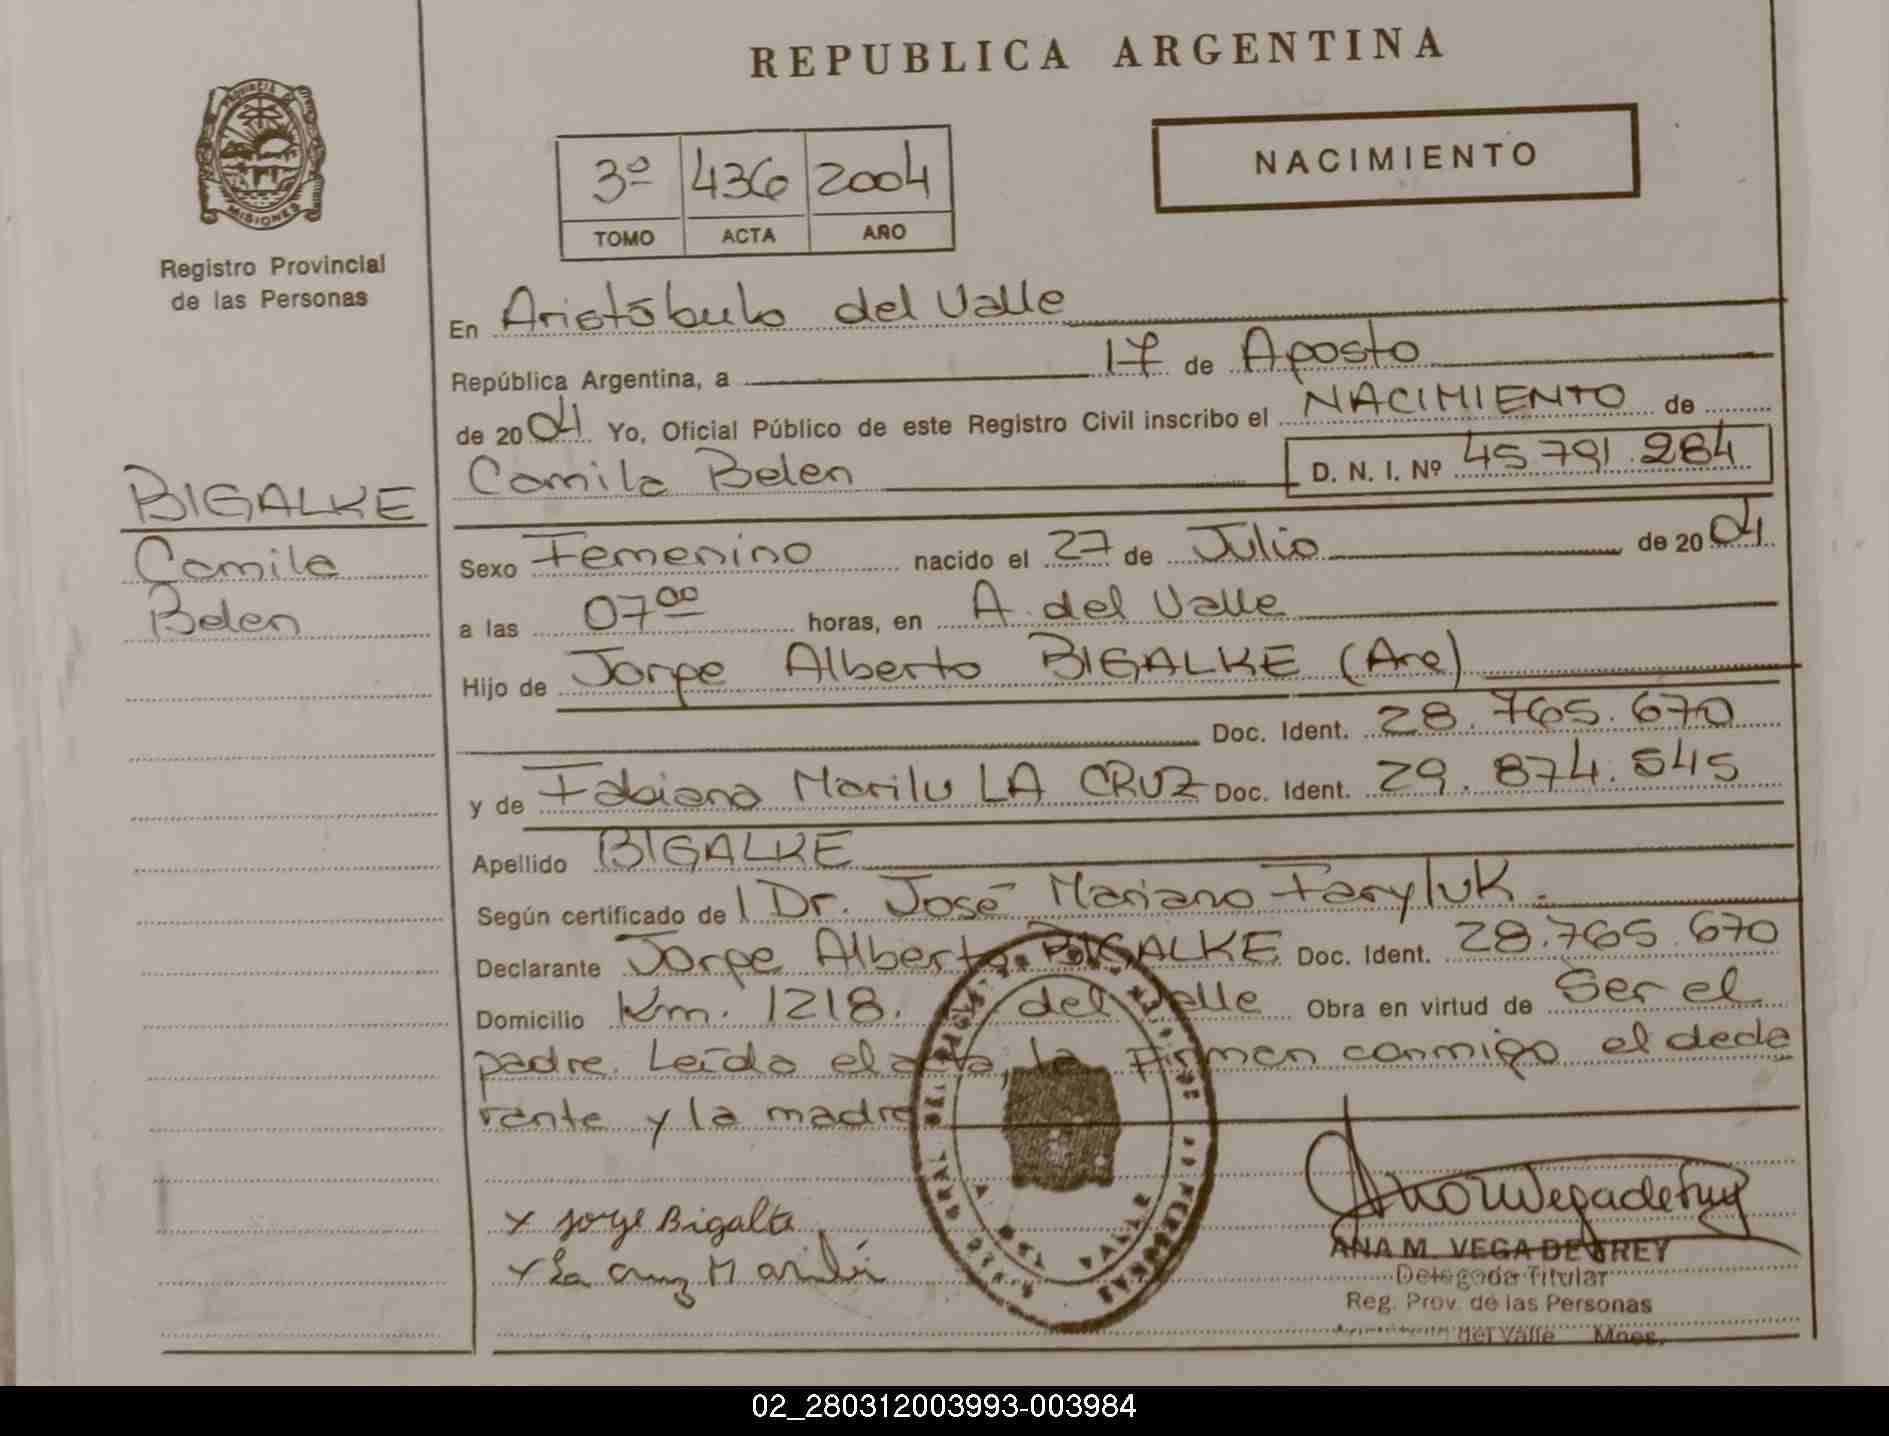 REPUBLICA ARGENTINA
PROVINCIA DE
MISIONES
Registro Provincial
de las Personas
3º 436 2004
TOMO ACTA AÑO
NACIMIENTO
En Aristóbulo del Valle
República Argentina, a 17 de Agosto
de 2004 Yo, Oficial Público de este Registro Civil inscribo el NACIMIENTO de
Camila Belen D. N. I. Nº 45791.284
BIGALKE
Camila
Belen
Sexo Femenino nacido el 27 de Julio de 2004
a las 07 00 horas, en A. del Valle
Hijo de Jorge Alberto BIGALKE (Arg)
Doc. Ident. 28.765.670
y de Fabiana Marilu LA CRUZ Doc. Ident. 29.874.545
Apellido BIGALKE
Según certificado del Dr. José Mariano Faryluk.
Declarante Jorge Alberto BIGALKE Doc. Ident. 28.765.670
Domicilio Km. 1218. del Valle Obra en virtud de Ser el
padre. Leída el acta, la firman conmigo el decla
rante y la madre
x Jorge Bigalke
x La Cruz Marilú
ANA M. VEGA DE FREY
Delegada Titular
Reg. Prov. de las Personas
del Valle Mnes.
02_280312003993-003984